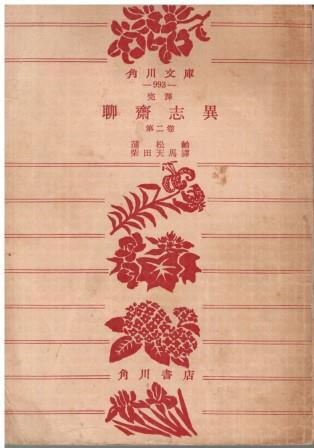 角川文庫
—993—
完譯
聊齋志異
第二巻
蒲松齡
柴田天馬譯
角川書店